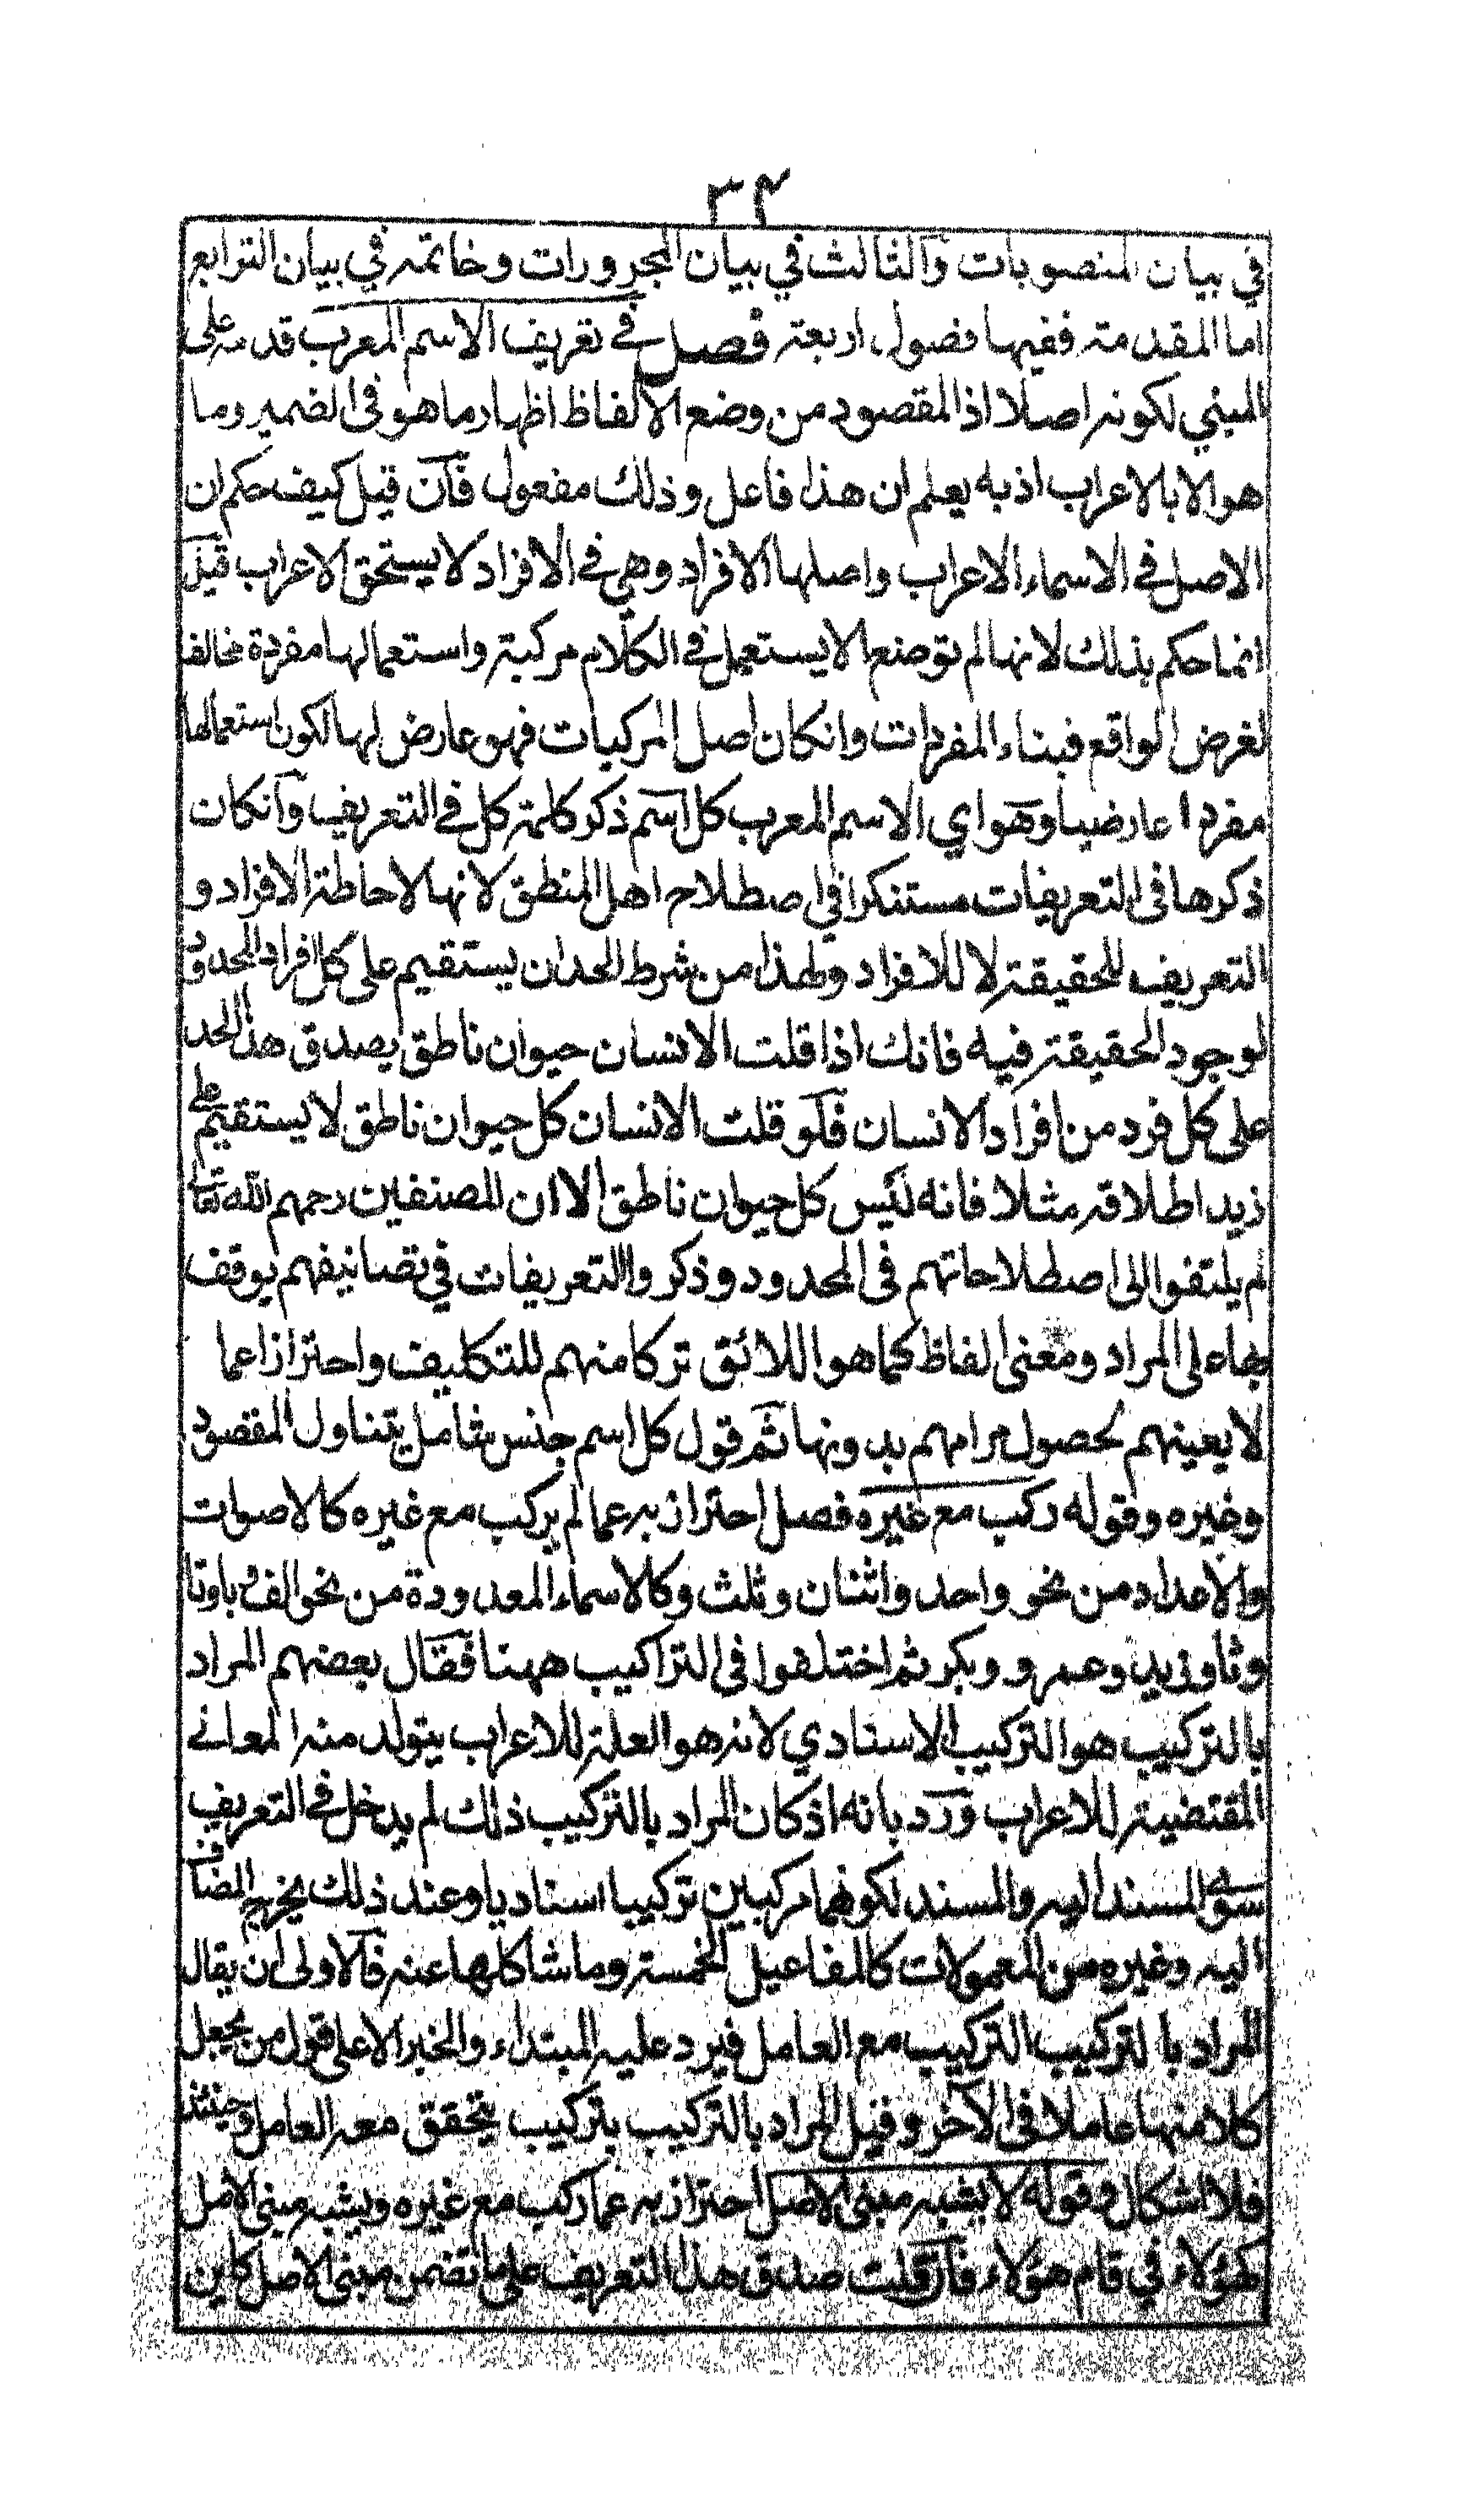 ٣٤
في بيان المنصوبات والثالث في بيان المجرورات وخاتمه في بيان التوابع
اما المقدمة ففيها فصول اربعة فصل في تعريف الاسم المعرب قدمه على
المبني لكونه اصلا اذ المقصود من وضع الالفاظ اظهار ما هو في الضمير وما
هو الا بالاعراب اذ به يعلم ان هذا فاعل وذلك مفعول فان قيل كيف حكم ان
الاصل في الاسماء الاعراب واصلها الافراد وهي في الافراد لا يستحق الاعراب قيل
انما حكم بذلك لانها لم توضع الا يستعمل في الكلام مركبة واستعمالها مفردة مخالف
لغرض الواقع فبناء المفردات وانكان اصل المركبات فهو عارض لها لكون استعمالها
مفردا عارضيا وهو اي الاسم المعرب كل اسم ذكر كلمة كل في التعريف وانكان
ذكرها في التعريفات مستنكرا في اصطلاح اهل المنطق لانها لاحاطة الافراد و
التعريف للحقيقة لا للافراد ولهذا من شرط الحد ان يستقيم على كل افراد المحدود
لوجود الحقيقة فيه فانك اذا قلت الانسان حيوان ناطق يصدق هذا الحد
على كل فرد من افراد الانسان فلو قلت الانسان كل حيوان ناطق لا يستقيم على
زيد اطلاقه مثلا فانه ليس كل حيوان ناطق الا ان المصنفين رحمهم الله تعالى
لم يلتفوا الى اصطلاحاتهم في المحدود وذكروا التعريفات في تصانيفهم يوقف
بها على المراد ومعنى الفاظ كما هو اللائق تركا منهم للتكليف واحترازا عما
لا يعينهم لحصول مرامهم بدونها ثم قول كل اسم جنس شامل يتناول المقصود
وغيره وقوله ركب مع غيره فصل احتراز به عما لم يركب مع غيره كالاصوات
والاعداد من نحو واحد واثنان وثلث وكالاسماء المعدودة من نحو الف و با وتا
وثا وزيد وعمرو وبكر ثم اختلفوا في التراكيب ههنا فقال بعضهم المراد
بالتركيب هو التركيب الاسنادي لانه هو العلة للاعراب يتولد منه المعاني
المقتضية للاعراب ورد بانه اذ كان المراد بالتركيب ذلك لم يدخل في التعريف
سوى المسند اليه والمسند لكونهما مركبين تركيبا اسناديا وعند ذلك يخرج المضاف
اليه وغيره من المعمولات كالمفاعيل الخمسة وما شاكلها عنه فالاولى ان يقال
المراد بالتركيب التركيب مع العامل فيرد عليه المبتداء والخبر الا على قول من يجعل
كلا منها عاملا في الآخر وقيل المراد بالتركيب بتركيب يتحقق معه العامل وحينئذ
فلا اشكال و قوله لا يشبه مبنى الاصل احتراز به عما ركب مع غيره ويشبه مبنى الاصل
كهؤلاء في قام هؤلاء فان قلت صدق هذا التعريف على ما تضمن مبنى الاصل كاين